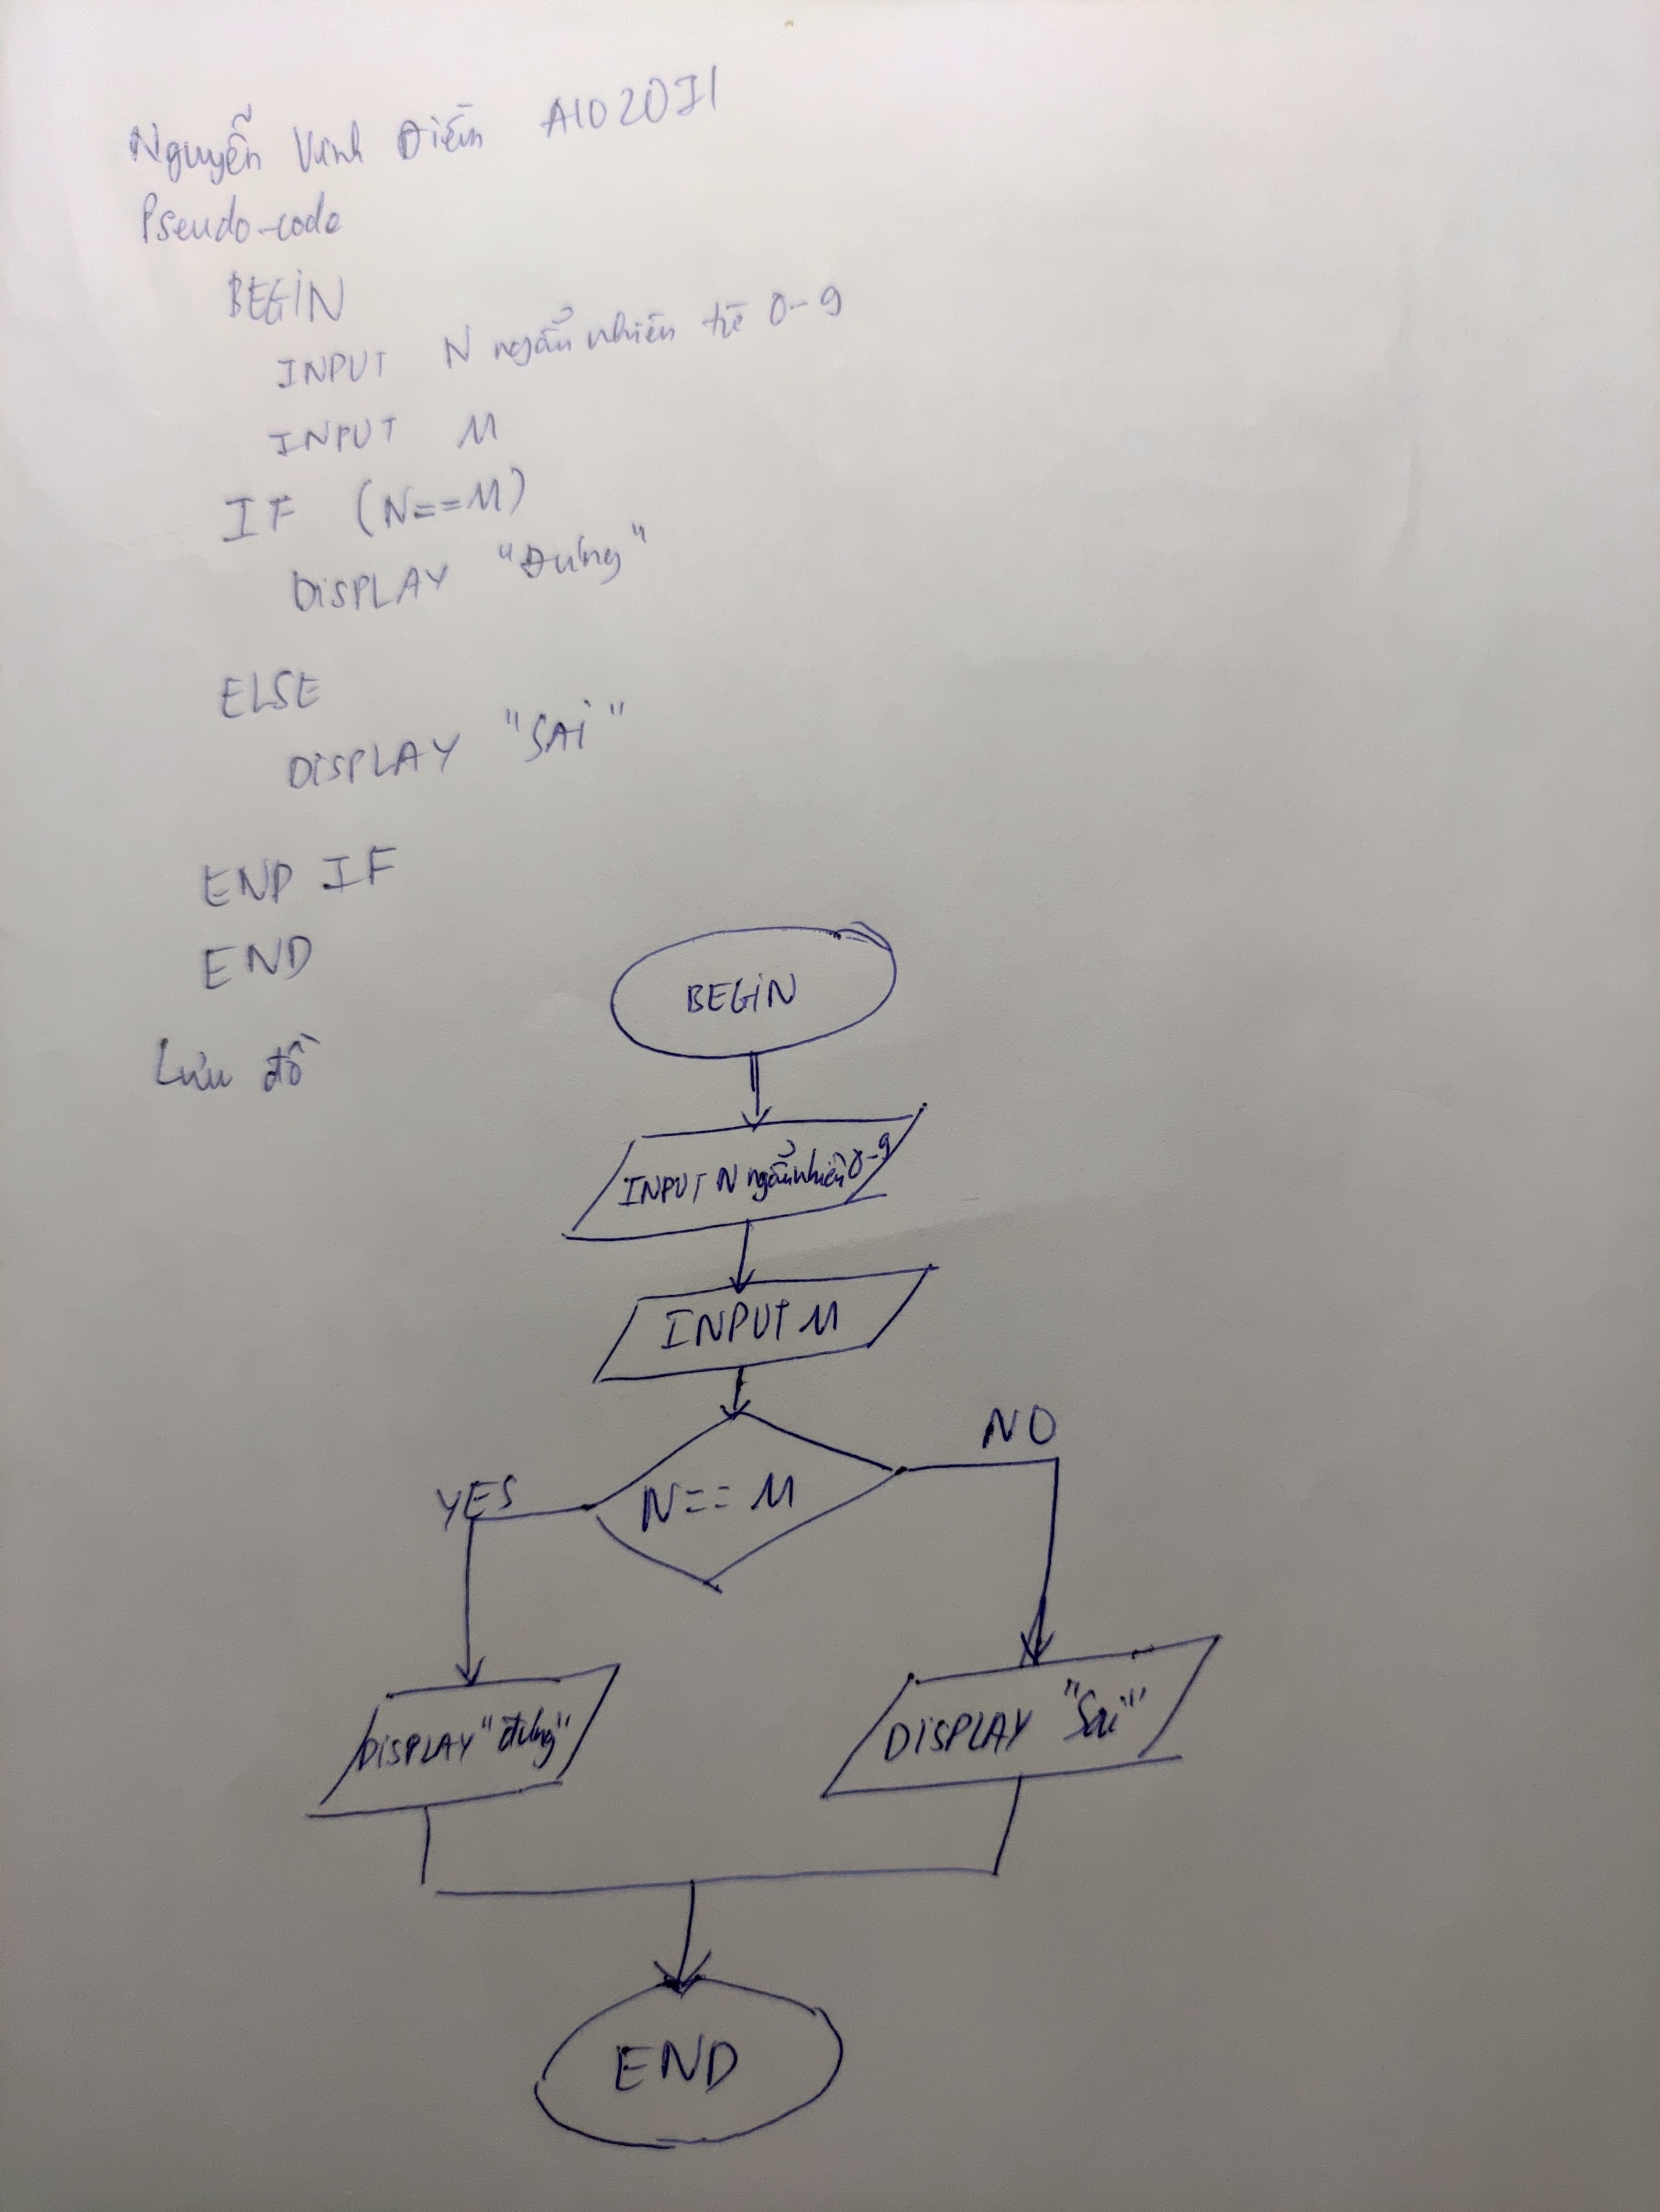 Nguyễn Vĩnh Điềm A1020I1
Pseudo-code
BEGiN
INPUT N ngẫu nhiên từ 0-9
INPUT M
IF (N==M)
DiSPLAY "Đúng"
ELSE
DiSPLAY "SAi"
END IF
END
Lưu đồ
BEGiN
INPUT N ngẫu nhiên 0-9
INPUT M
N== M
YES
NO
DiSPLAY "đúng"
DiSPLAY "Sai"
END